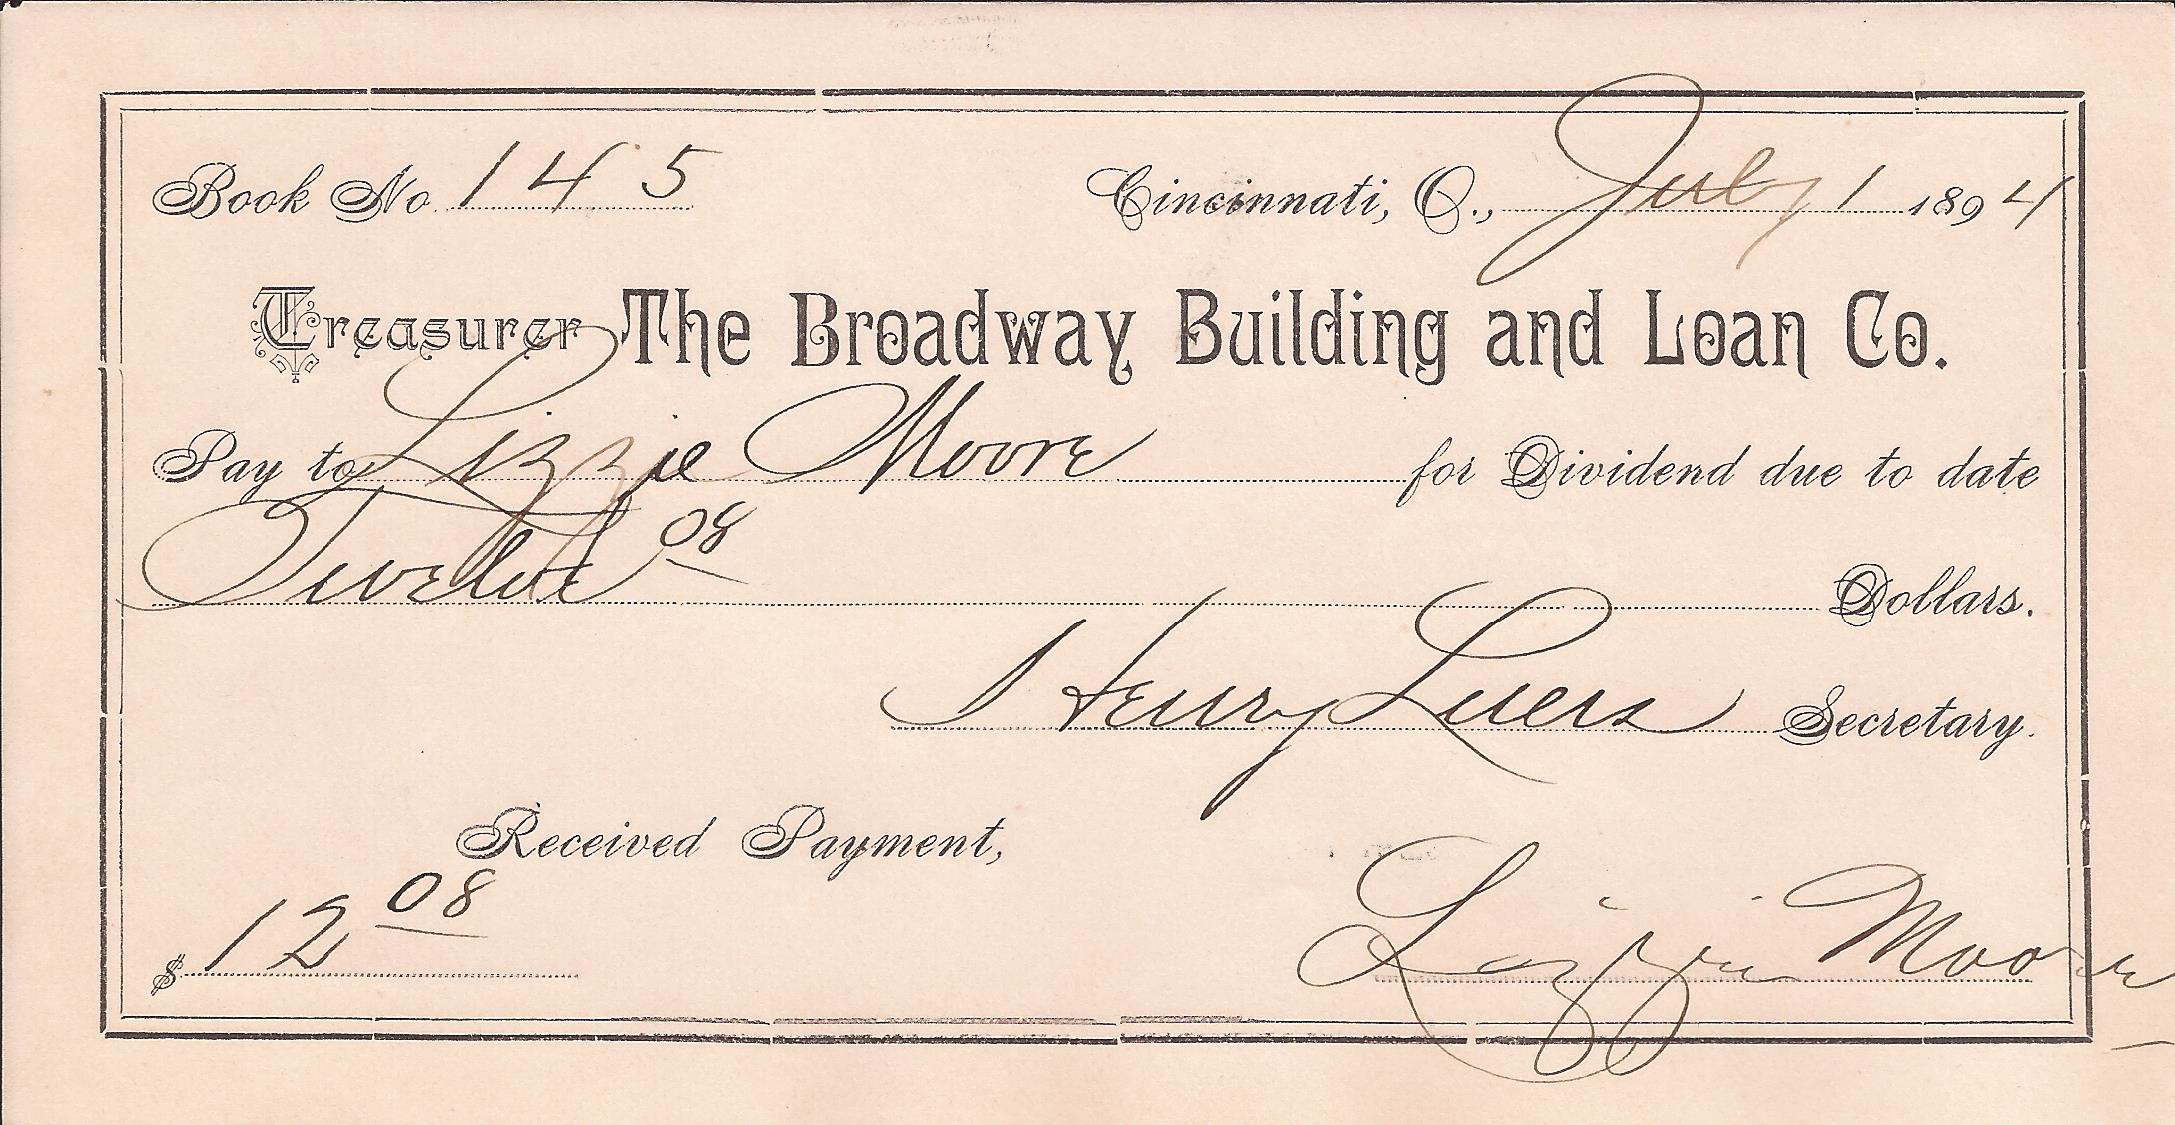 Book No. 145 Cincinnati, O., July 1 1894
Treasurer The Broadway Building and Loan Co.
Pay to Lizzie Moore for Dividend due to date
Twelve 08 Dollars.
Henry Luers Secretary.
Received Payment,
$ 12 08 Lizzie Moore